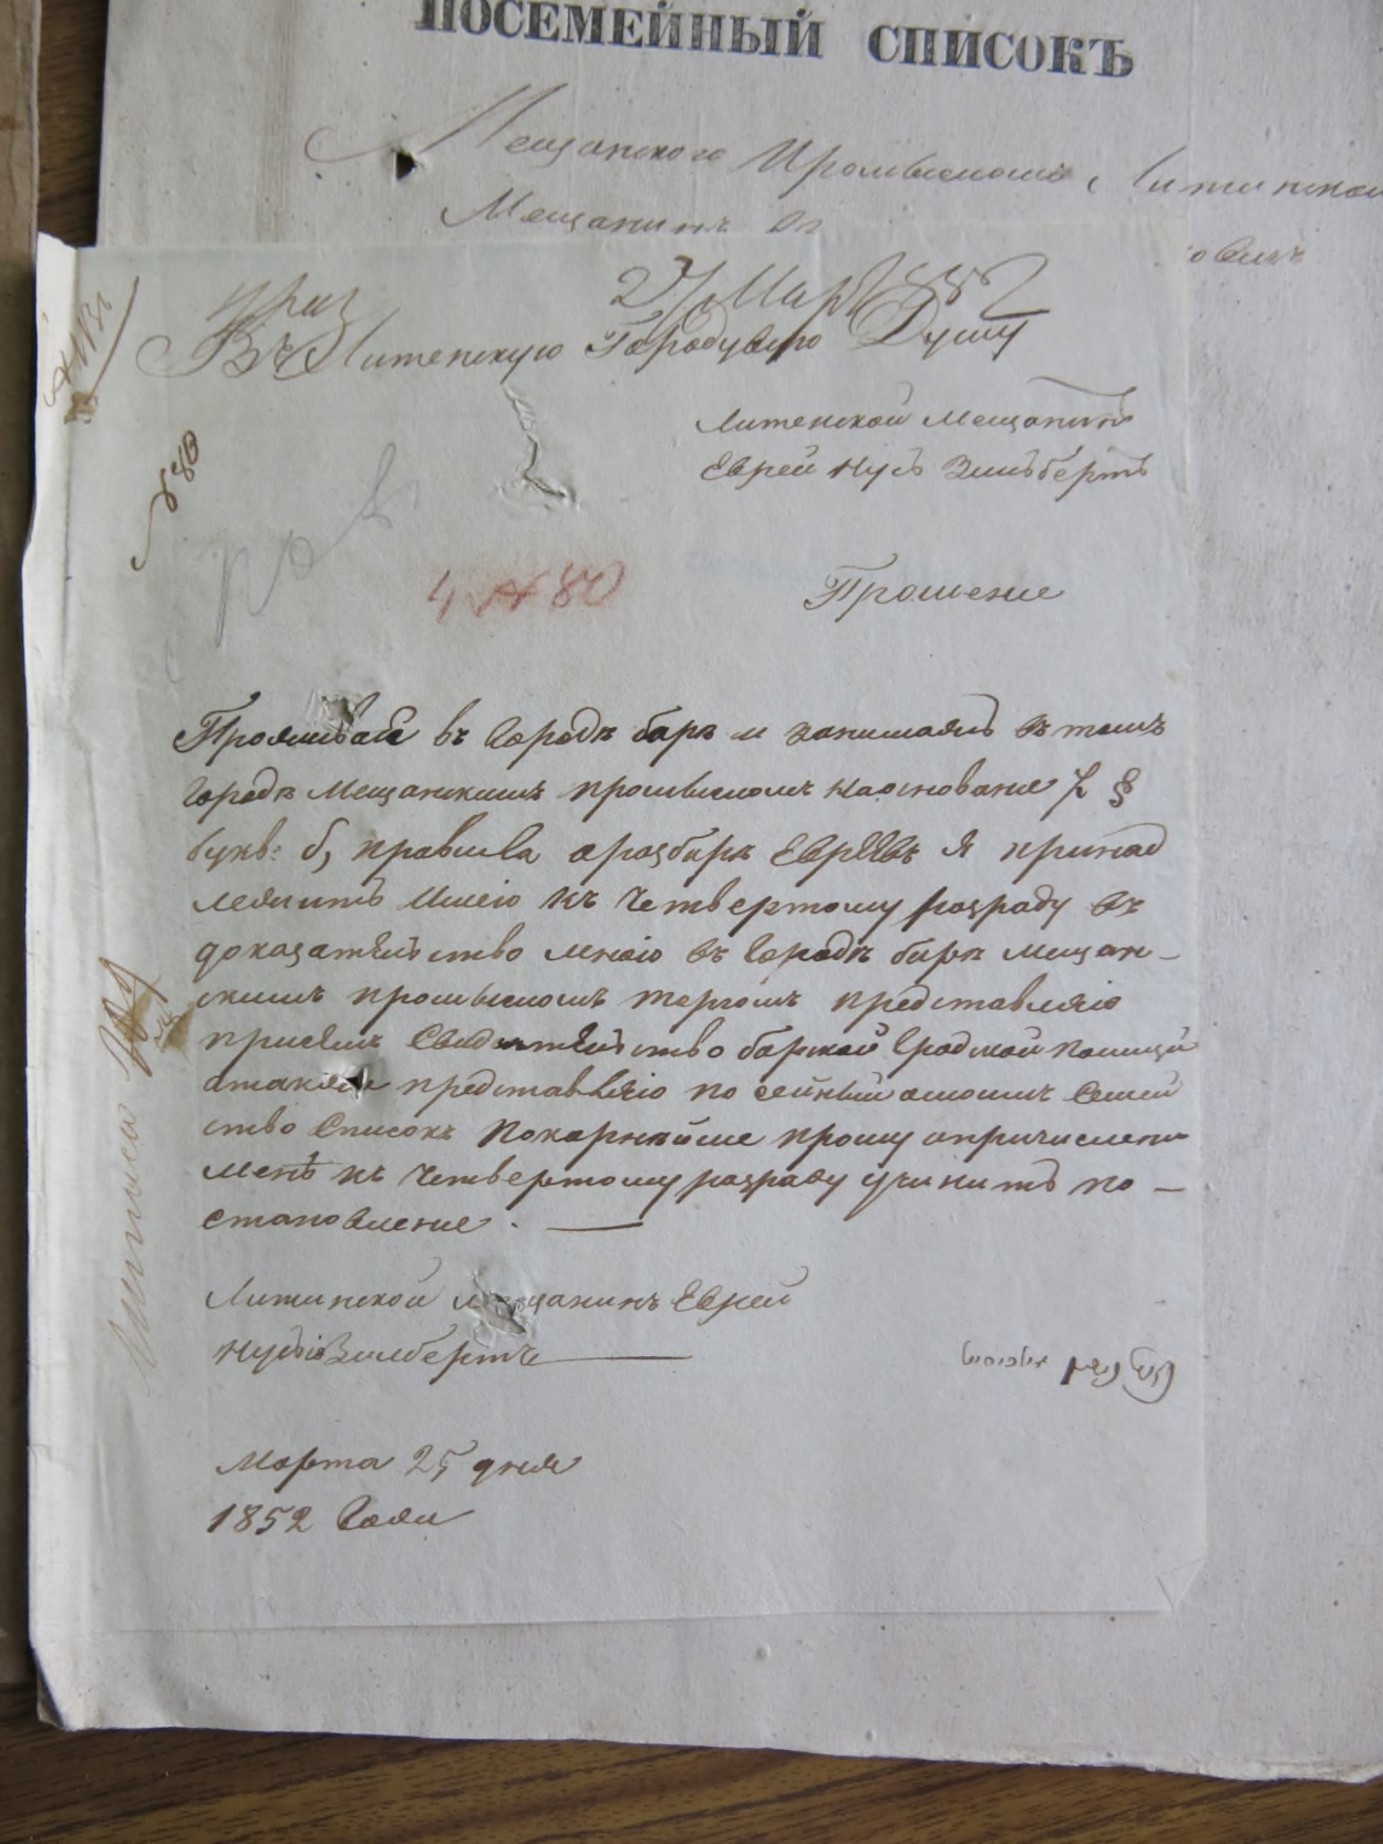 ПОСЕМЕЙНЫЙ СПИСОКЪ
Мещанского Промысломъ Литинской
Мещанинъ
овичъ
27 Мар 1852
Въ Литенскую Городувую Думу
№ 80
Литенской Мещанинъ
Еврей Нусь Зильберть
4 № 80
Прошение
Проживая въ городѣ барѣ и занимаясь въ томъ
городѣ Мещанскимъ промысломъ наоснование 7 §
букв: б, правила оразборѣ Евреевъ я принад
лежить имею къ Четвертому разраду въ
доказательство мною въ городѣ барѣ мещан-
скимъ промысломъ торгомъ представляю
присемъ Свидѣтельство барской градской полиции
атакже представляю по сейный омоимъ Семей
ство Список Покорнѣйше прошу опричислени
мень къ Четвертому разраду учинить по-
становление.
Литинской мещанинъ Еврей
Нусь Зилбертъ
Марта 25 дня
1852 года